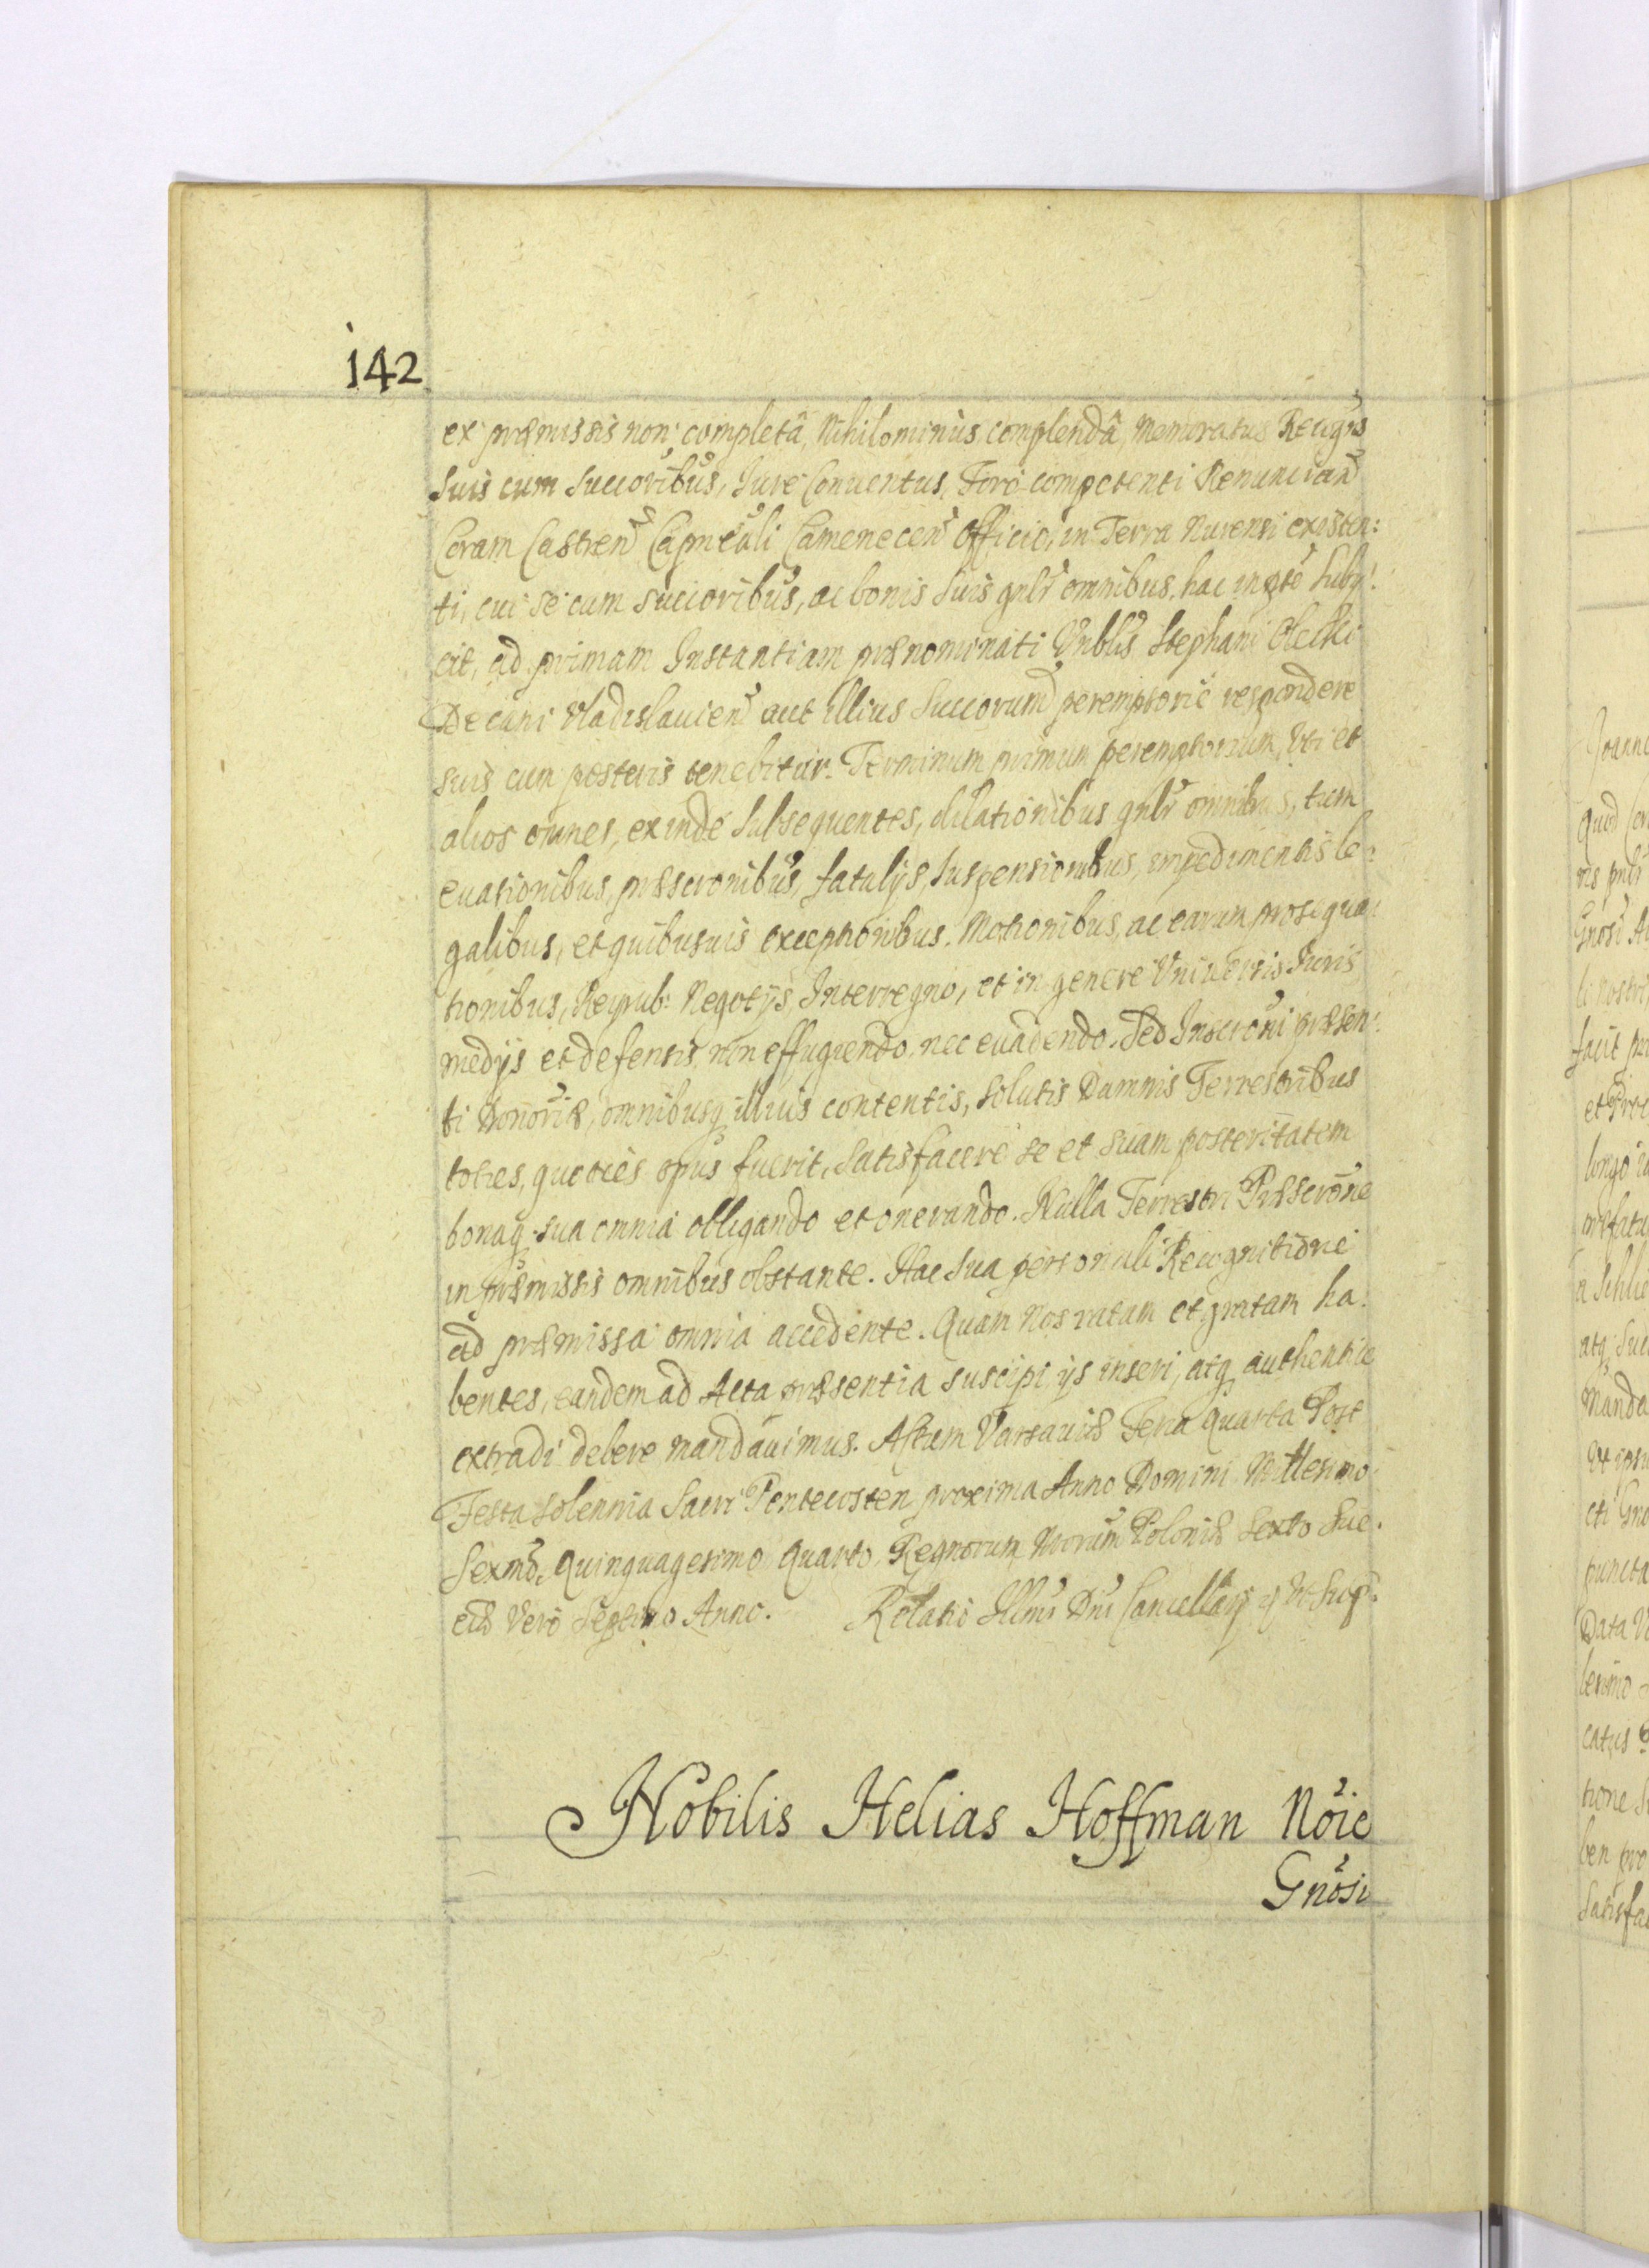 142
ex præmissis non completâ, Nihilominus complendâ, memoratus Recogñs
suis cum Succoribus, Jure Conuentus, Foro competenti Renuncian̄
Coram Castren̄ Capitali Camenecen̄ Officio, in Terra Nurensi existen:
ti, cui se cum succoribus, ac bonis suis gnlr omnibus, hac in pte Subij:
cit, ad primam Instantiam prænominati Vnblis Stephani Olecki
Decani Vladislauien̄ aut illius Succorum peremptorie respondere
suis cum posteris tenebitur. Terminum primum peremptorium, Vti et
alios omnes, exinde Subsequentes, dilationibus gnlr omnibus, tum
euasionibus, præscronibus, fatalijs, Suspensionibus, impedimentis le:
galibus, et quibusuis exceptionibus. Motionibus, ac earum prosequu:
tionibus, Reipub: Negotijs, Interregno, et in genere Vniuersis Juris
medijs et defensis, non effugiendo, nec euadendo. Sed Inscroni præsen:
ti omnibusq illius contentis, solutis Damnis Terrestribus
toties, quoties opus fuerit, Satisfacere se et suam posteritatem
bonaq sua omnia obligando et onerando. Nulla Terrestri Præscrone
in præmissis omnibus obstante. Hac Sua personali Recognitione
ad præmissa omnia accedente. Quam Nos ratam et gratam ha:
bentes, eandem ad Acta præsentia suscipi ijs inseri, atq authentice
extradi debere mandauimus. Actum Varsauiæ Feria Quarta Post
Festa Solennia Sacri Pentecosten proxima Anno Domini Millesimo
Sexmo. Quinquagesimo Quarto Regnorum Nrorum Poloniæ Sexto Sue:
ciæ Vero Septimo Anno. Relatio Illmi Dni Cancellarij Vt Sup:
Nobilis Helias Hoffman Nōie
Gnosi